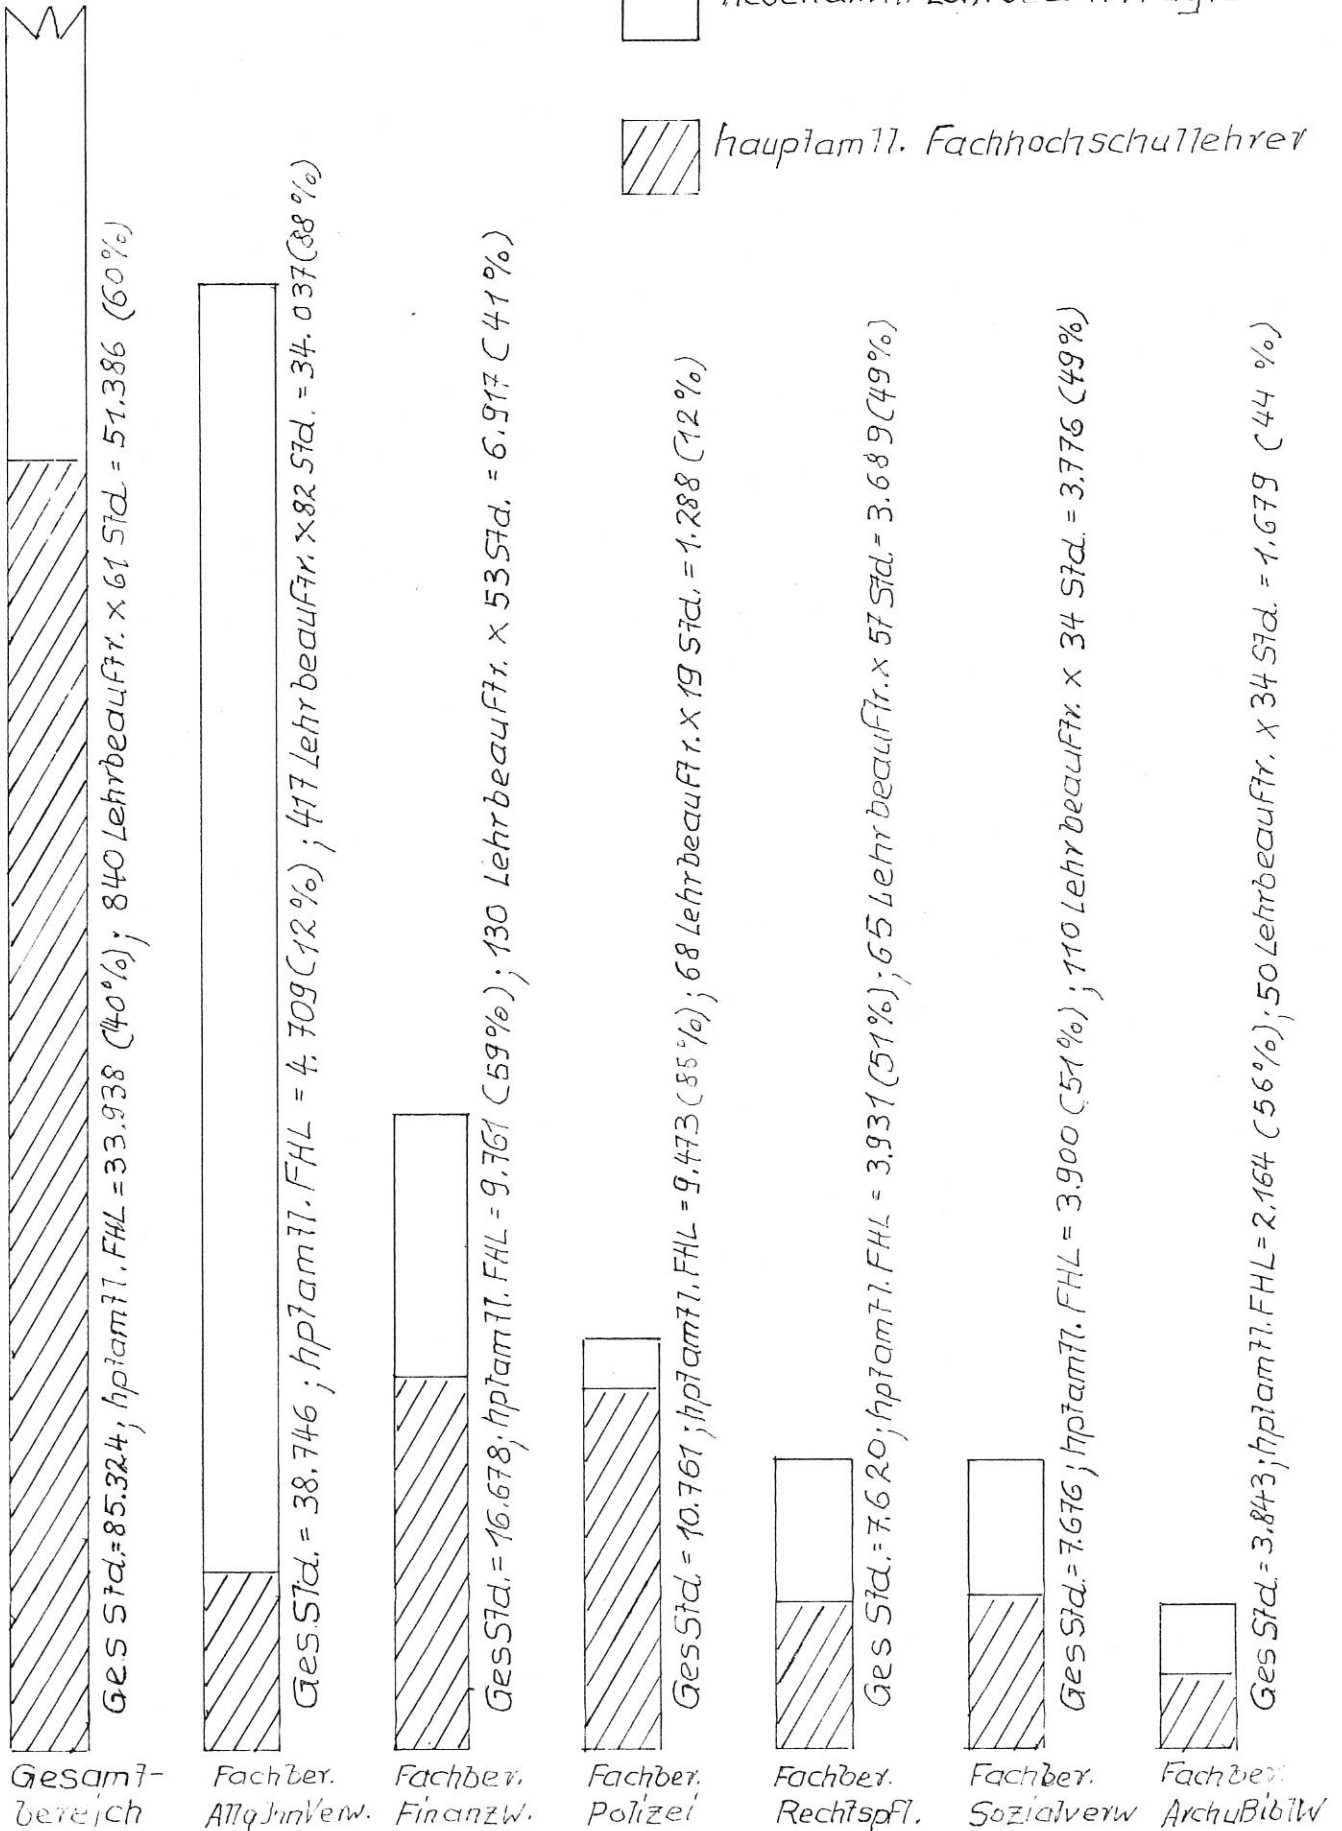 hauptamtl. Fachhochschullehrer
Ges Std.=85.324; hptamtl. FHL=33.938 (40%); 840 Lehrbeauftr. x 61 Std = 51.386 (60%)
Ges.Std. = 38.746; hptamtl. FHL = 4.709 (12%); 417 Lehrbeauftr. x 82 Std. = 34.037 (88%)
Ges Std. = 16.678; hptamtl. FHL = 9.761 (59%); 130 Lehrbeauftr. x 53 Std. = 6.917 (41%)
Ges Std. = 10.761; hptamtl. FHL = 9.473 (85%); 68 Lehrbeauftr. x 19 Std. = 1.288 (12%)
Ges Std. = 7.620; hptamtl. FHL = 3.931 (51%); 65 Lehrbeauftr. x 57 Std. = 3.689 (49%)
Ges Std. = 7.676; hptamtl. FHL = 3.900 (51%); 110 Lehrbeauftr. x 34 Std. = 3.776 (49%)
Ges Std. = 3.843; hptamtl. FHL = 2.164 (56%); 50 Lehrbeauftr. x 34 Std. = 1.679 (44 %)
Gesamt-
bereich
Fachber.
AllgInnVerw.
Fachber.
Finanzw.
Fachber.
Polizei
Fachber.
Rechtspfl.
Fachber.
Sozialverw
Fachber.
ArchuBiblW